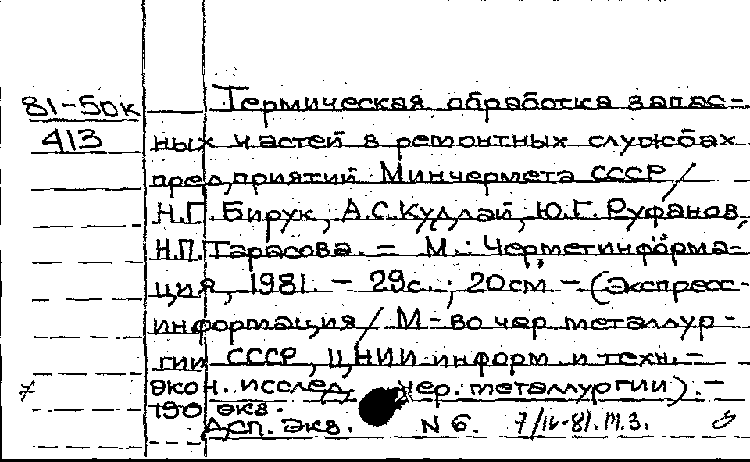 81-50к Термическая обработка запас-
413 ных частей в ремонтных службах
предприятий Минчермета СССР /
Н.Г. Бирук, А.С. Кудлай, Ю.Г. Руфанов,
Н.П. Тарасова. - М.: Черметинформа-
ция, 1981. - 29с.; 20см - (Экспресс-
информация / М-во чер. металлур-
гии СССР, ЦНИИ информ. и техн.-
экон. исслед. чер. металлургии). -
190 экз.
Дсп. Экз. N 6. 7/IV-81.